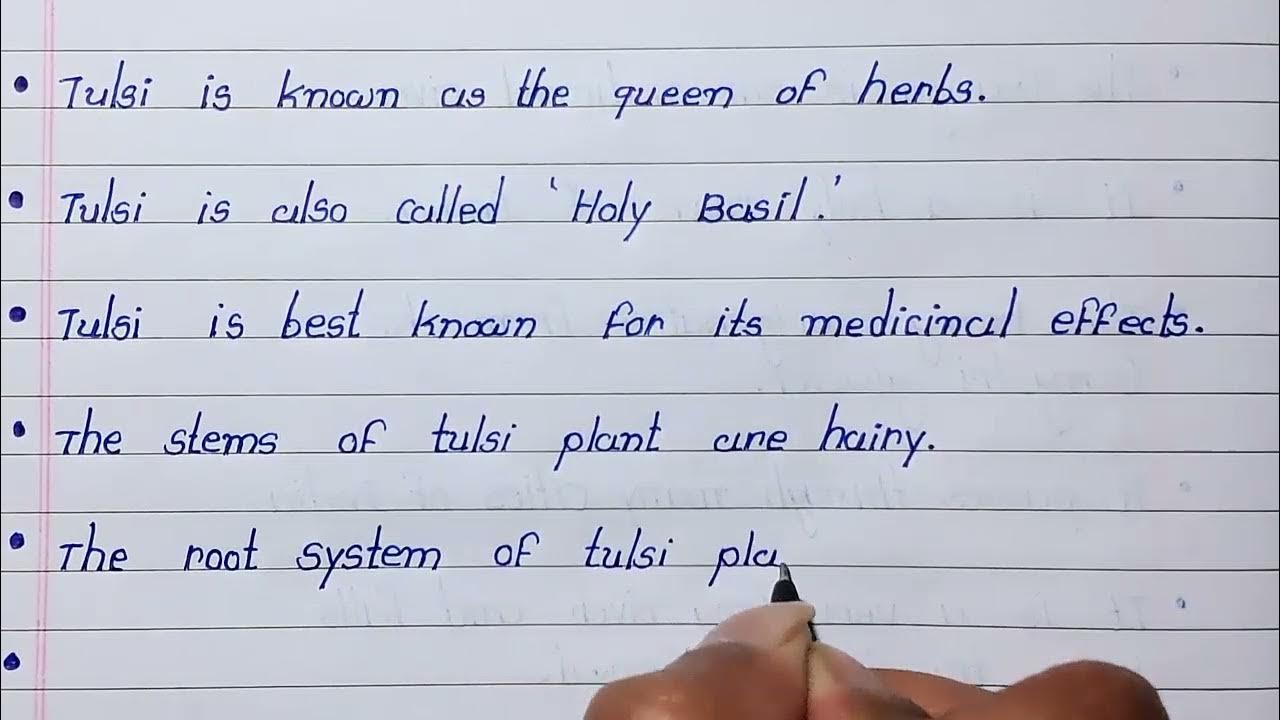 • Tulsi is known as the queen of herbs.
• Tulsi is also called 'Holy Basil.'
• Tulsi is best known for its medicinal effects.
• The stems of tulsi plant are hairy.
• The root system of tulsi pla
•